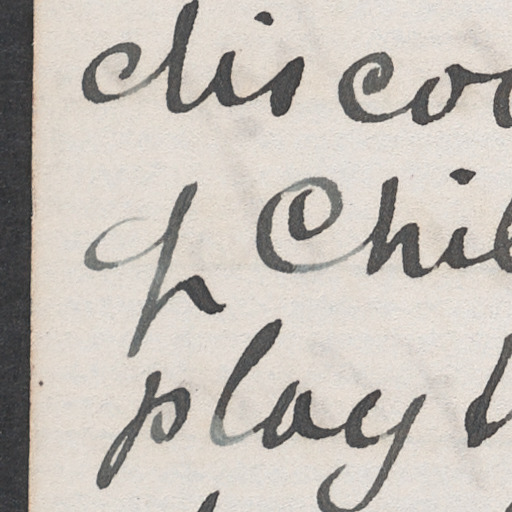 disco
of Chil
play